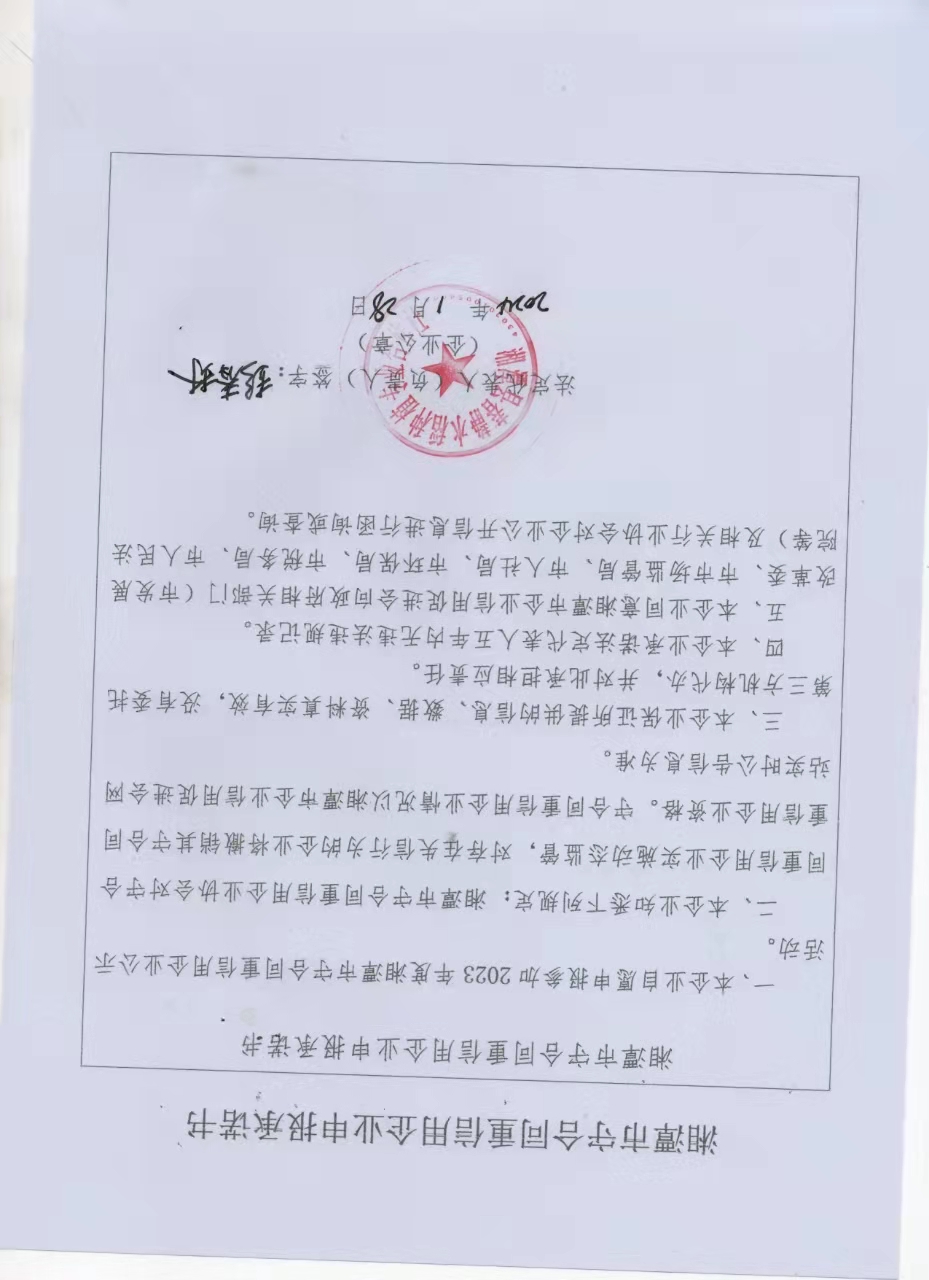 湘潭市守合同重信用企业申报承诺书
湘潭市守合同重信用企业申报承诺书
一、本企业自愿申报参加 2023 年度湘潭市守合同重信用企业公示
活动。
二、本企业知悉下列规定：湘潭市守合同重信用企业协会对守合
同重信用企业实施动态监管，对存在失信行为的企业将撤销其守合同
重信用企业资格。守合同重信用企业情况以湘潭市企业信用促进会网
站实时公告信息为准。
三、本企业保证所提供的信息、数据、资料真实有效，没有委托
第三方机构代办，并对此承担相应责任。
四、本企业承诺法定代表人五年内无违法违规记录。
五、本企业同意湘潭市企业信用促进会向政府相关部门（市发展
改革委、市市场监管局、市人社局、市环保局、市税务局、市人民法
院等）及相关行业协会对企业公开信息进行函询或查询。
法定代表人（负责人）签字：
（企业公章）
2024 年 1 月 28 日
水稻种植专业合